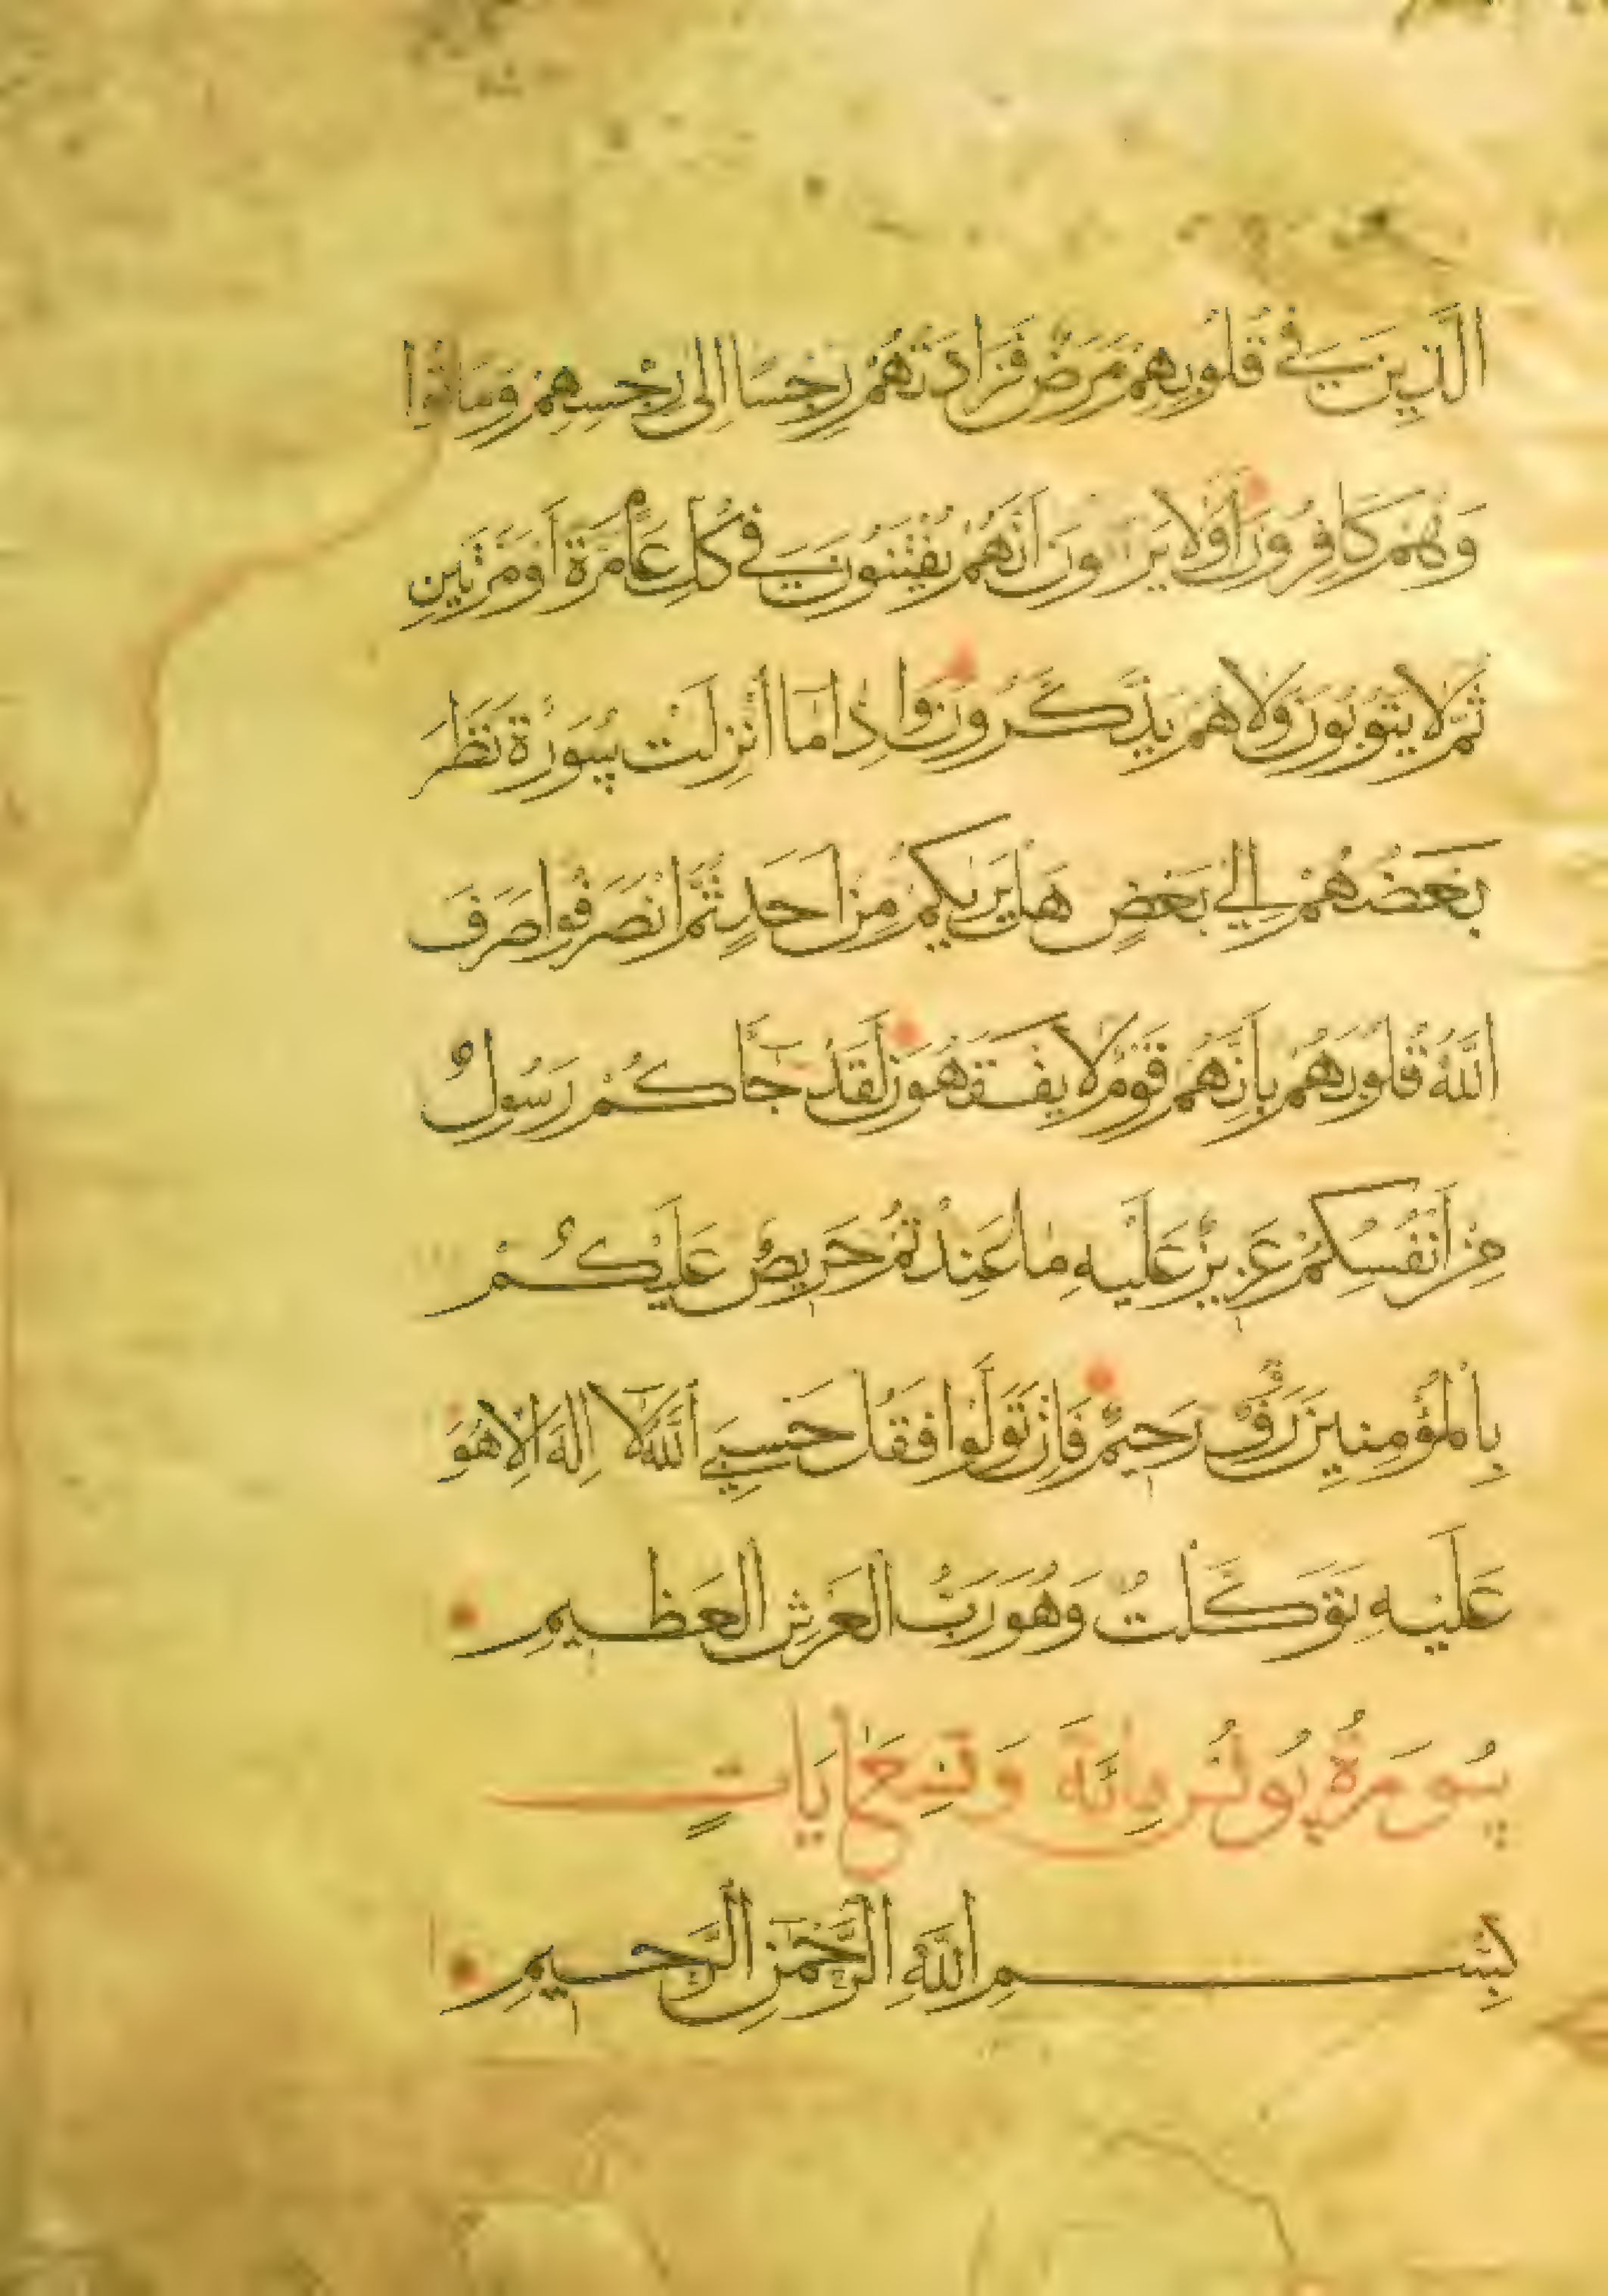 الَّذِينَ فِي قُلُوبِهِمْ مَرَضٌ فَزَادَتْهُمْ رِجْسًا إِلَى رِجْسِهِمْ وَمَاتُوا
وَهُمْ كَافِرُونَ أَوَلَا يَرَوْنَ أَنَّهُمْ يُفْتَنُونَ فِي كُلِّ عَامٍ مَرَّةً أَوْ مَرَّتَيْنِ
ثُمَّ لَا يَتُوبُونَ وَلَا هُمْ يَذَّكَّرُونَ وَإِذَا مَا أُنْزِلَتْ سُورَةٌ نَظَرَ
بَعْضُهُمْ إِلَى بَعْضٍ هَلْ يَرَىكُمْ مِنْ أَحَدٍ ثُمَّ انْصَرَفُوا صَرَفَ
اللَّهُ قُلُوبَهُمْ بِأَنَّهُمْ قَوْمٌ لَا يَفْقَهُونَ لَقَدْ جَاكُمْ رَسُولٌ
مِنْ أَنْفُسِكُمْ عَزِيزٌ عَلَيْهِ مَا عَنِتُّمْ حَرِيصٌ عَلَيْكُمْ
بِالْمُؤْمِنِينَ رَؤُفٌ رَحِيمٌ فَإِنْ تَوَلَّوْا فَقُلْ حَسْبِيَ اللَّهُ لَا إِلَهَ إِلَّا هُوَ
عَلَيْهِ تَوَكَّلْتُ وَهُوَ رَبُّ الْعَرْشِ الْعَظِيمِ
سُورَةُ يُونُسَ مِائَةٌ وَتِسْعُ آيَاتٍ
بِسْمِ اللَّهِ الرَّحْمَنِ الرَّحِيمِ